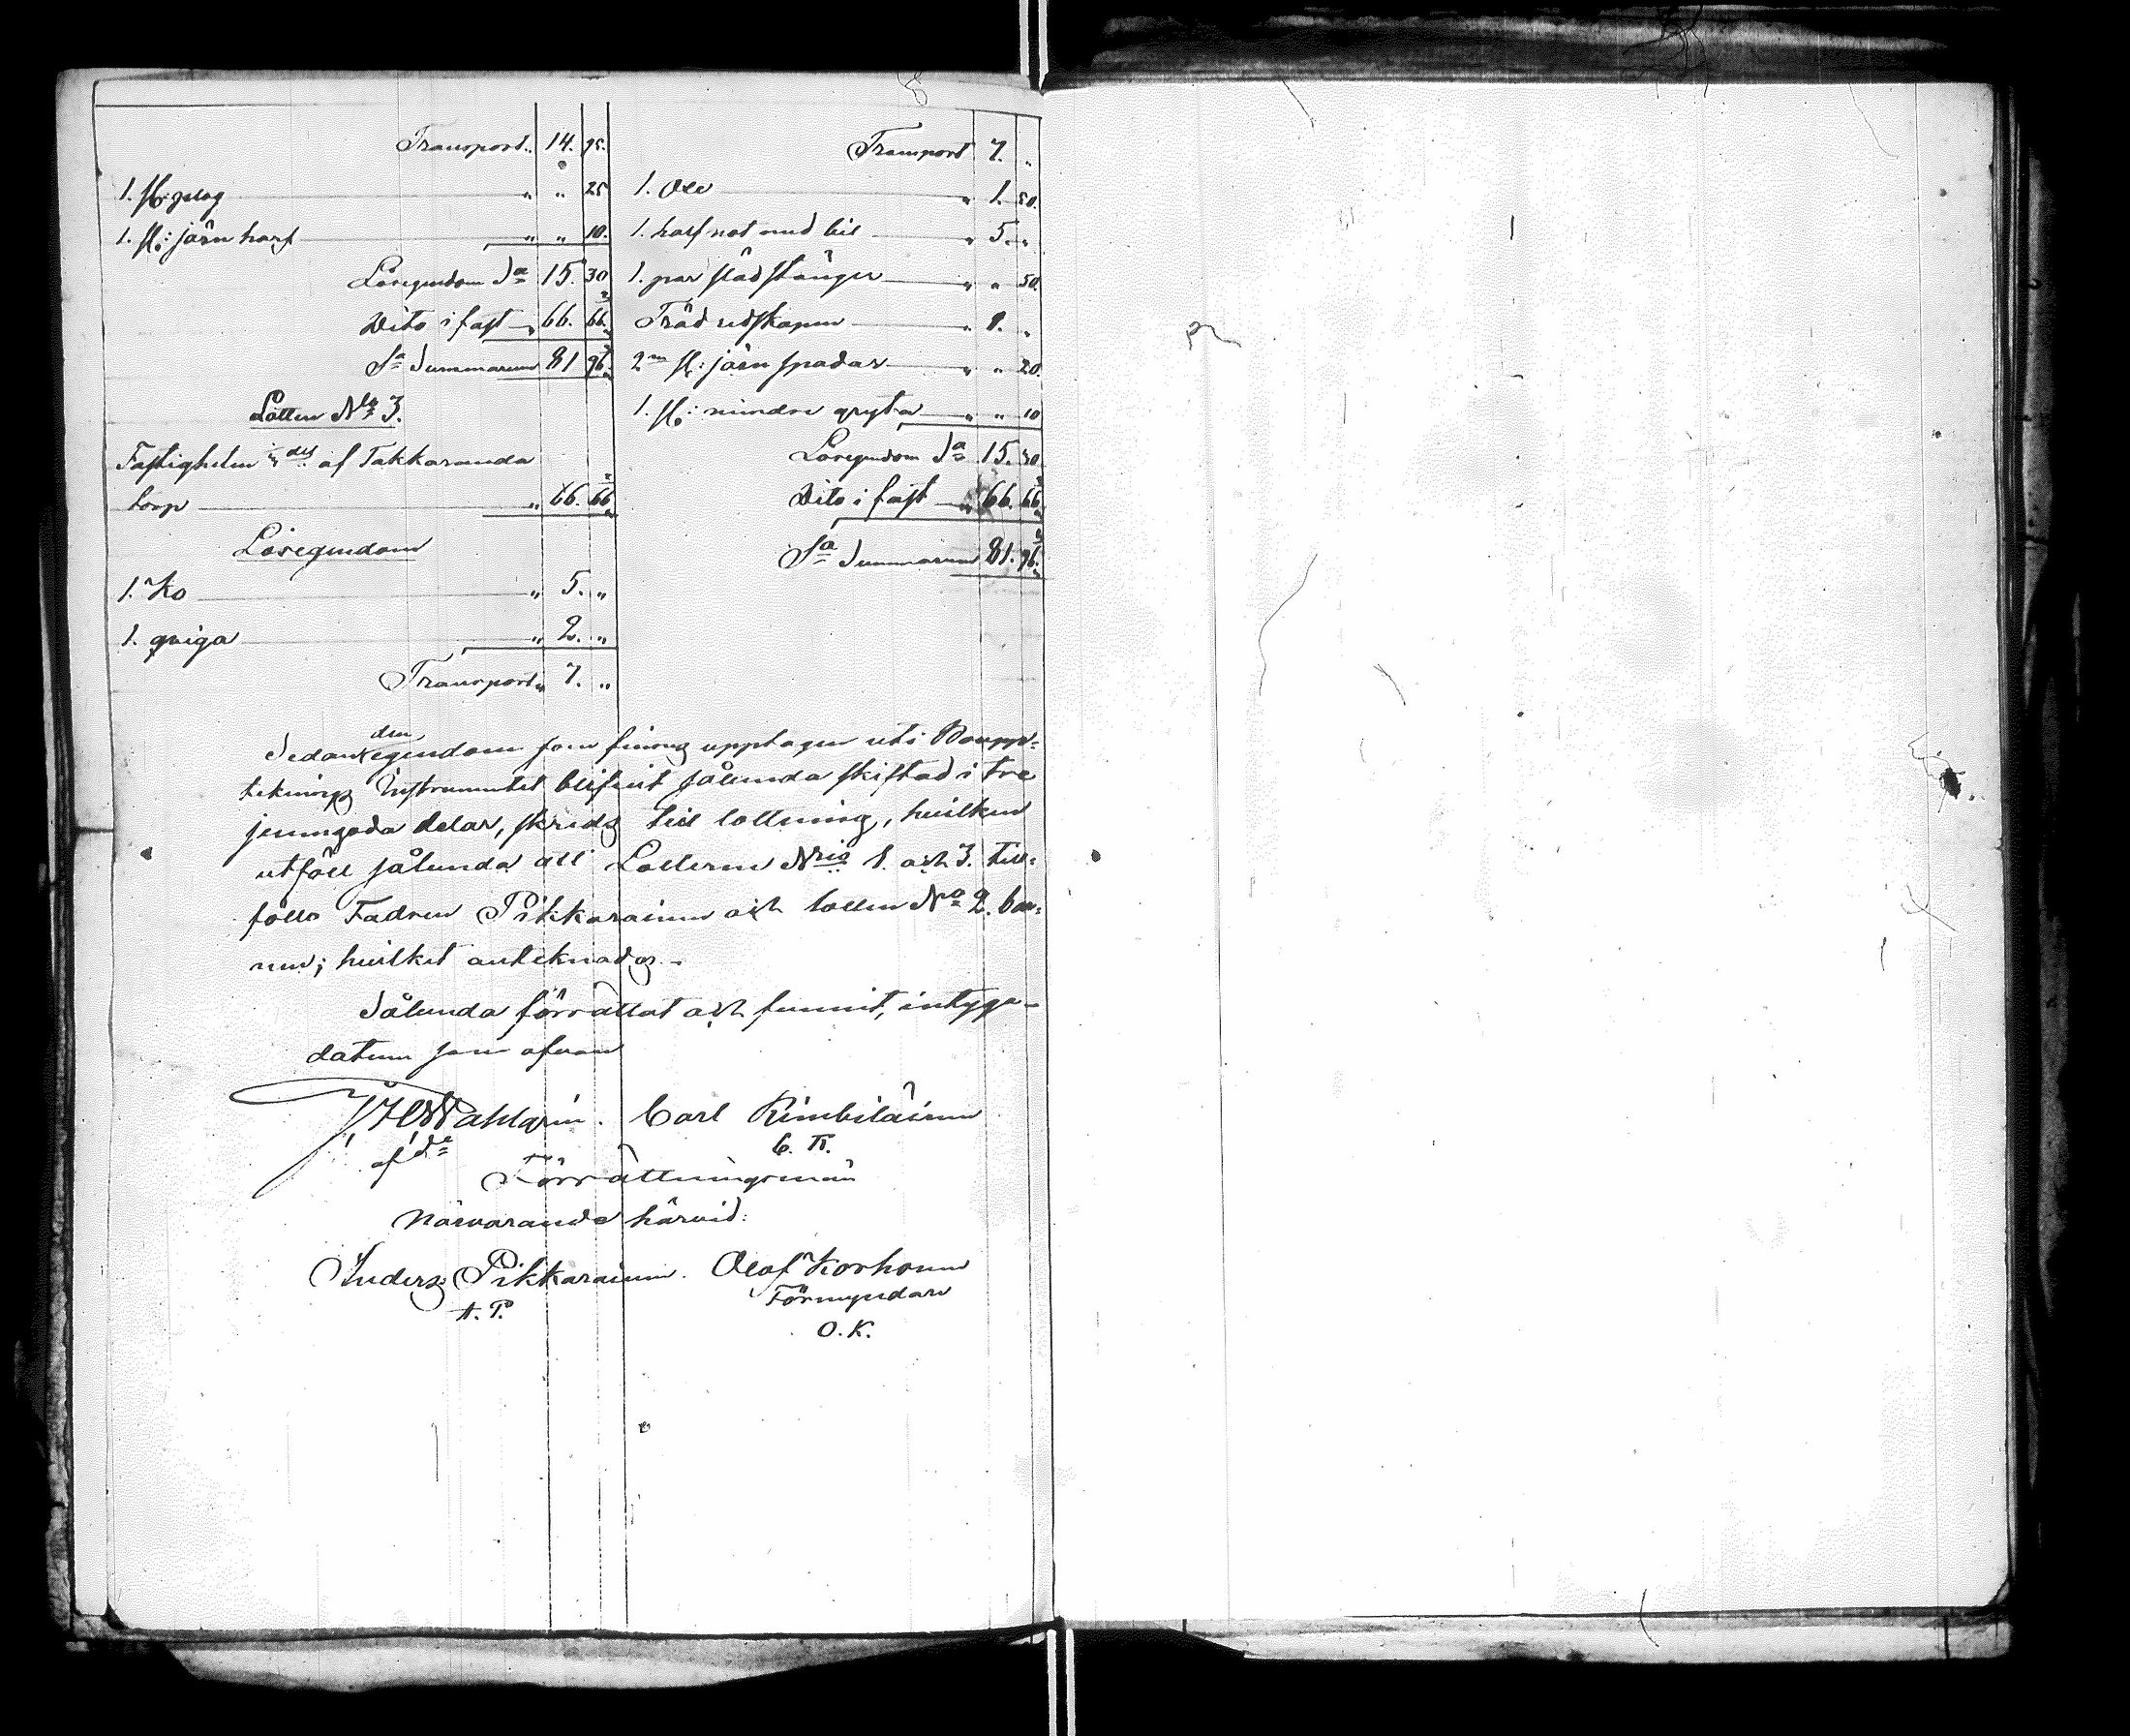 Transport „ 14. 95.
1. st: plog „ „ 25
1. st: järn harf „ „ 10.
Lösegendom Sa 15. 30
Dito i fast „ 66. 66 2/3
Sa Summarum 81 96 2/3
Lotten No 3.
Fastigheten 1/3 del af Takkaranda
torp „ 66. 66 2/3
Lösegendom
1. Ko „ 5. „
1. qviga „ 2. „
Transport „ 7. „
Transport 7. „
1. „ 1. 50.
1. half not med „ 5. „
1. par städstänger „ „ 50.
Träd redskapen „ 1. „
2ne st: järn spadar „ „ 20.
1. st: mindre gryta „ „ 10
Lösegendom Sa 15. 30
Dito i fast „ 66. 66 2/3
Sa Summarum 81. 96 2/3
Sedan den egendom som finnes upptagen uti Boupp=
teknings Instrumentet blifvit sålunda skiftad i tre
jemngoda delar, skreds till lottning, hvilken
utföll sålunda att Lotterne Nris 1. och 3. till=
föllo Fadren Pikkarainen och lotten No 2. bar=
nen; hvilket anteknades.
Sålunda förrättat och funnit, intyga
datum som ofvan
J H Wahlgrén. Carl Kimbiläinen
C. K.
Förrättningsmän
Närvarande härvid:
Anders Pikkarainen. Olof Korhonen
A. P. Förmyndare
O. K.